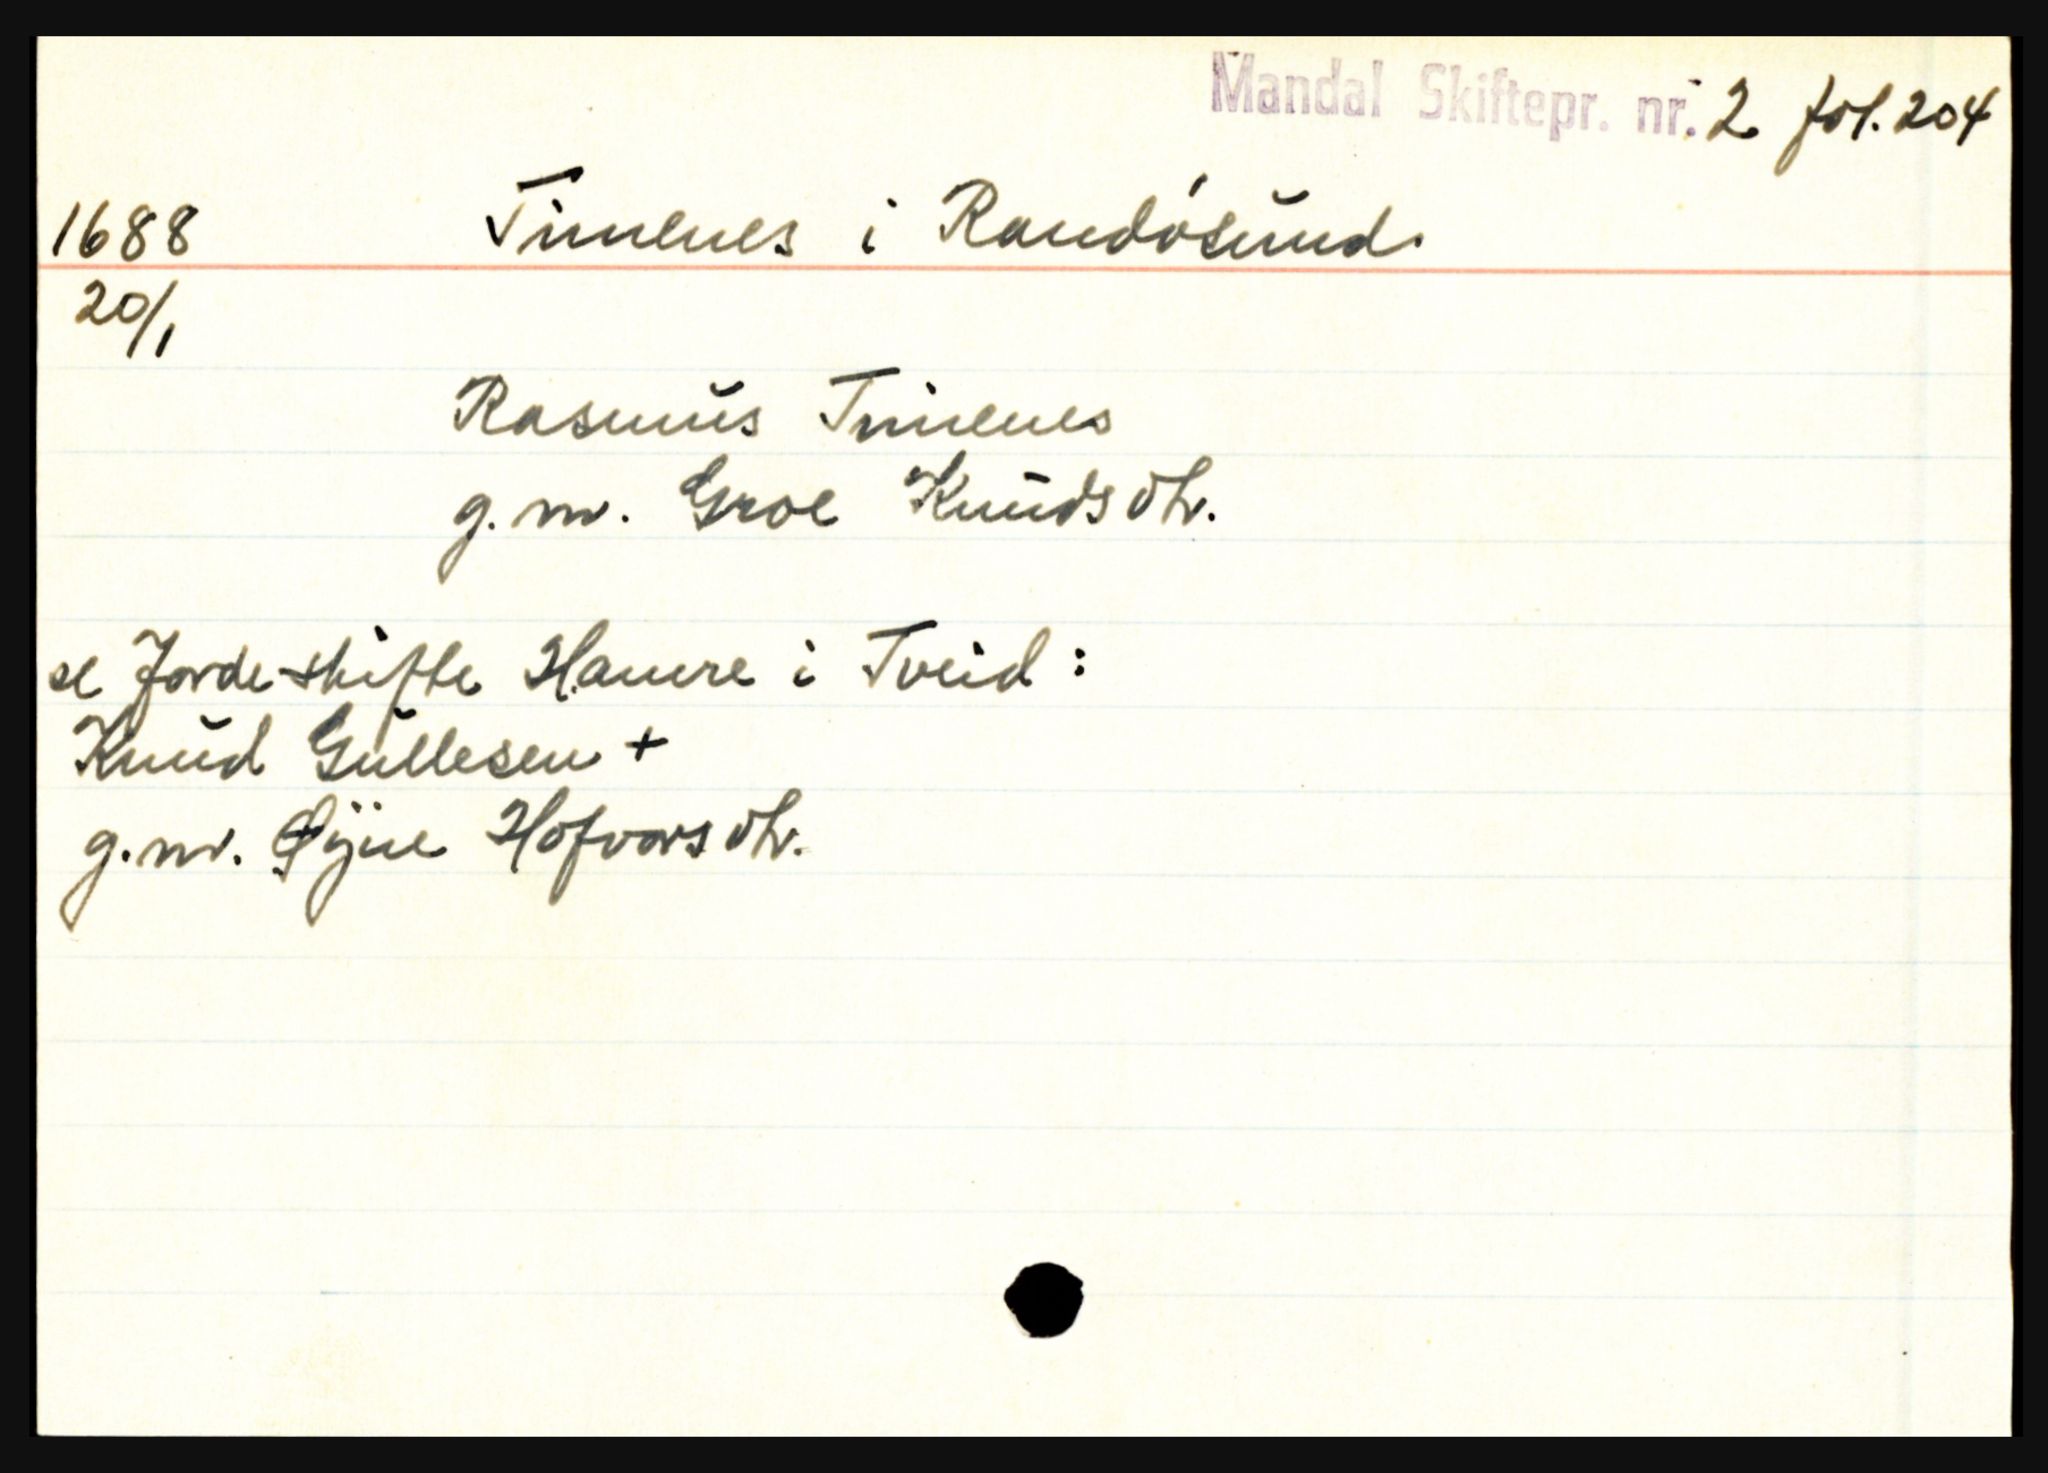 Mandal Skiftepr. nr. 2 fol. 204
1688 Timenes i Randøsund.
20/1
Rasmus Timenes
g.m. Groe Knudsdtr.
se Jorde-skifte Hamre i Tveid:
Knud Gullesen +
g.m. Øÿne Hofvorsdtr.